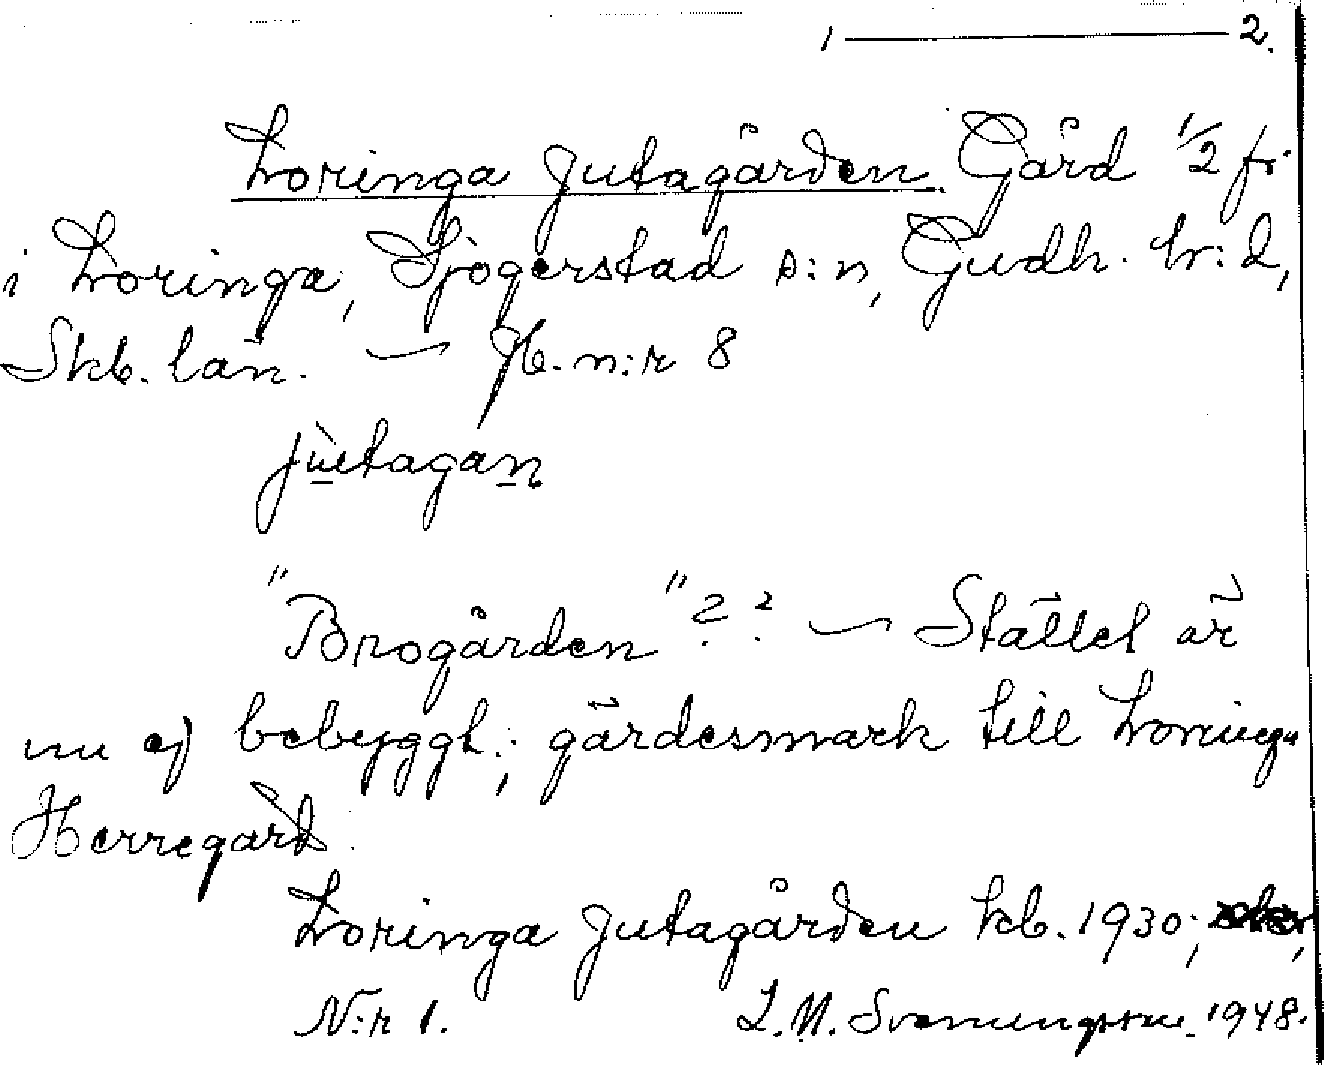 1 — 2.
Loringa Jutagården. Gård 1/2 fr
i Loringa, Sjogerstad s:n, Gudh. hr:d,
Skb. län. — Jb. n:r 8
jùetagan
"Brogården"?? — Stället är
nu ej bebyggt; gärdesmark till Loringa
Herregård.
Loringa Jutagården kb. 1930;
N:r 1. L.M. Svenungsson. 1948.